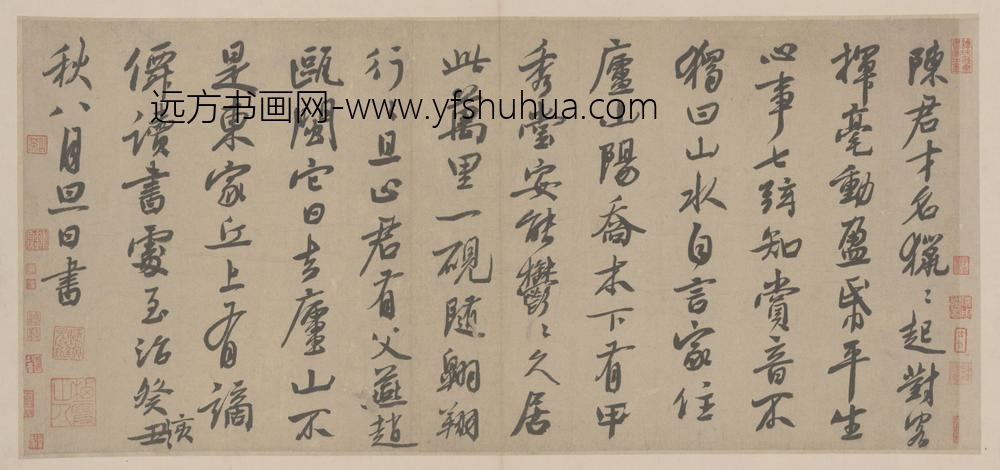 陳君才名獵〻起對客
揮毫動盈帋平生
心事七弦知賞音不
獨曰山水自言家住
廬山陽喬木下有甲
秀堂安能鬱〻久居
此萬里一硯隨翺翔
行且止君有父燕趙
甌閩它日去廬山不
是東家丘上有謫
僊讀書處至治癸丑亥
秋八月旦日書
远方书画网-www.yfshuhua.com